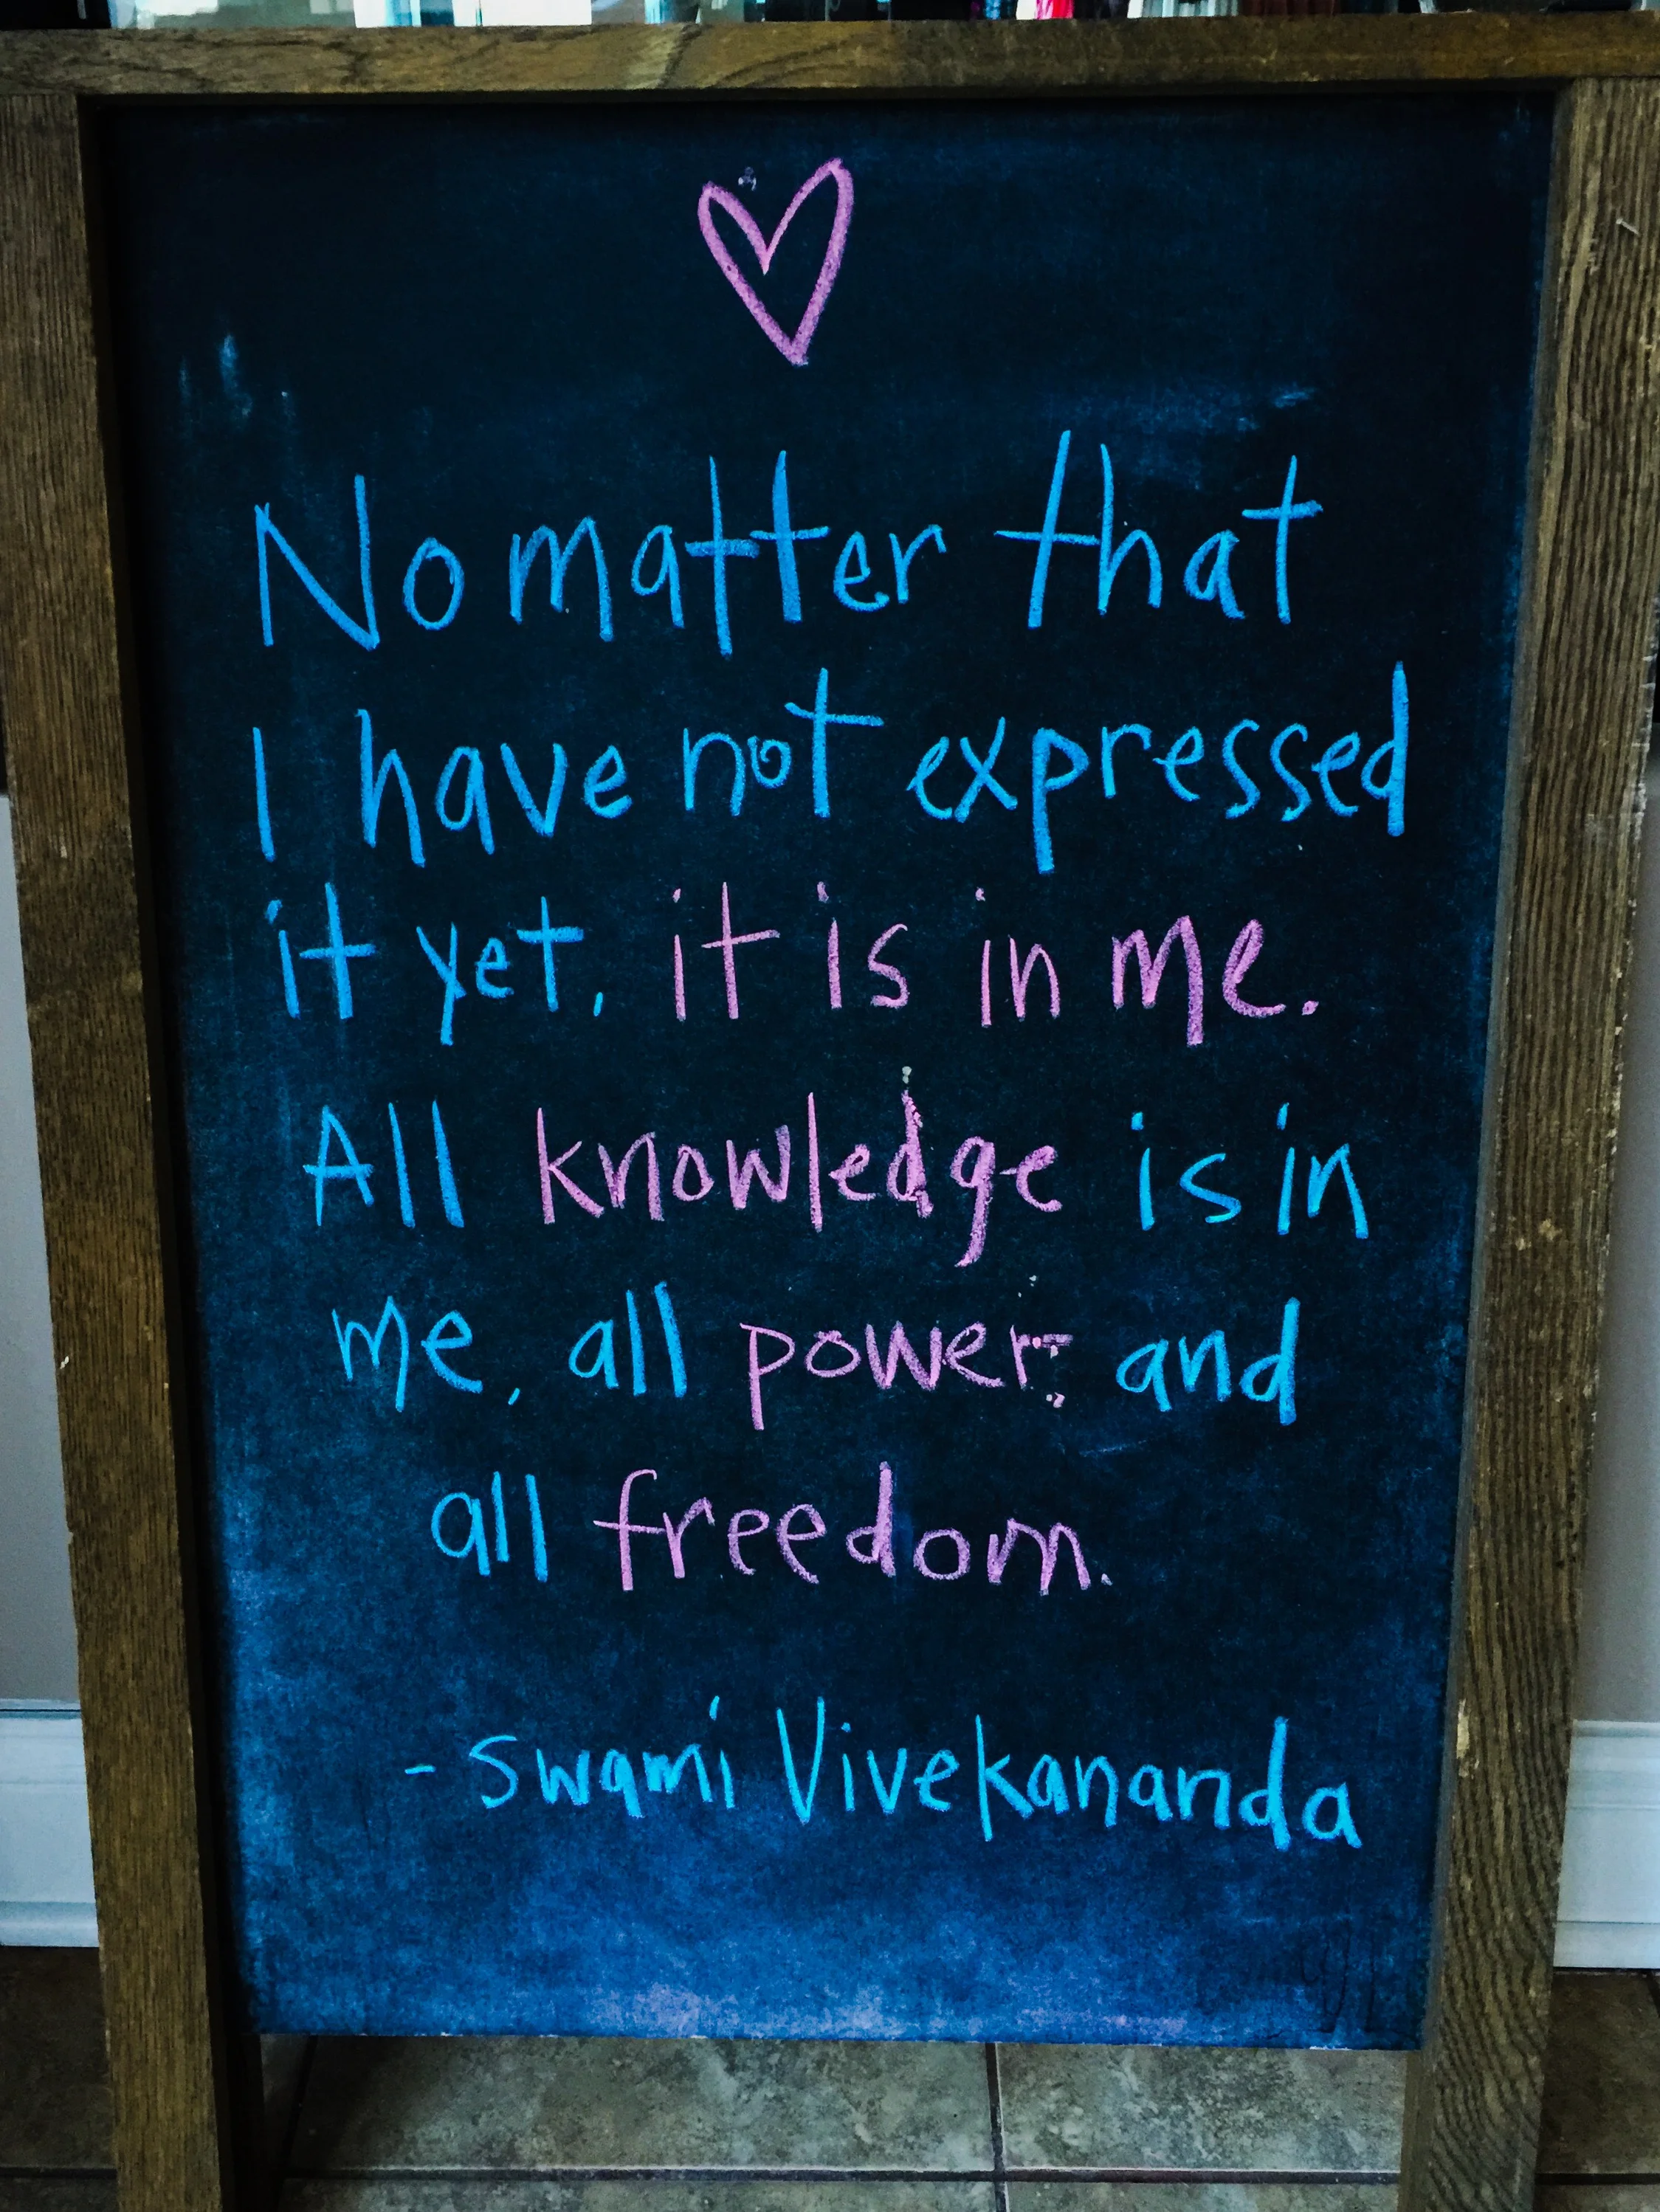 No matter that
I have not expressed
it yet, it is in me.
All knowledge is in
me, all power and
all freedom.
- Swami Vivekananda